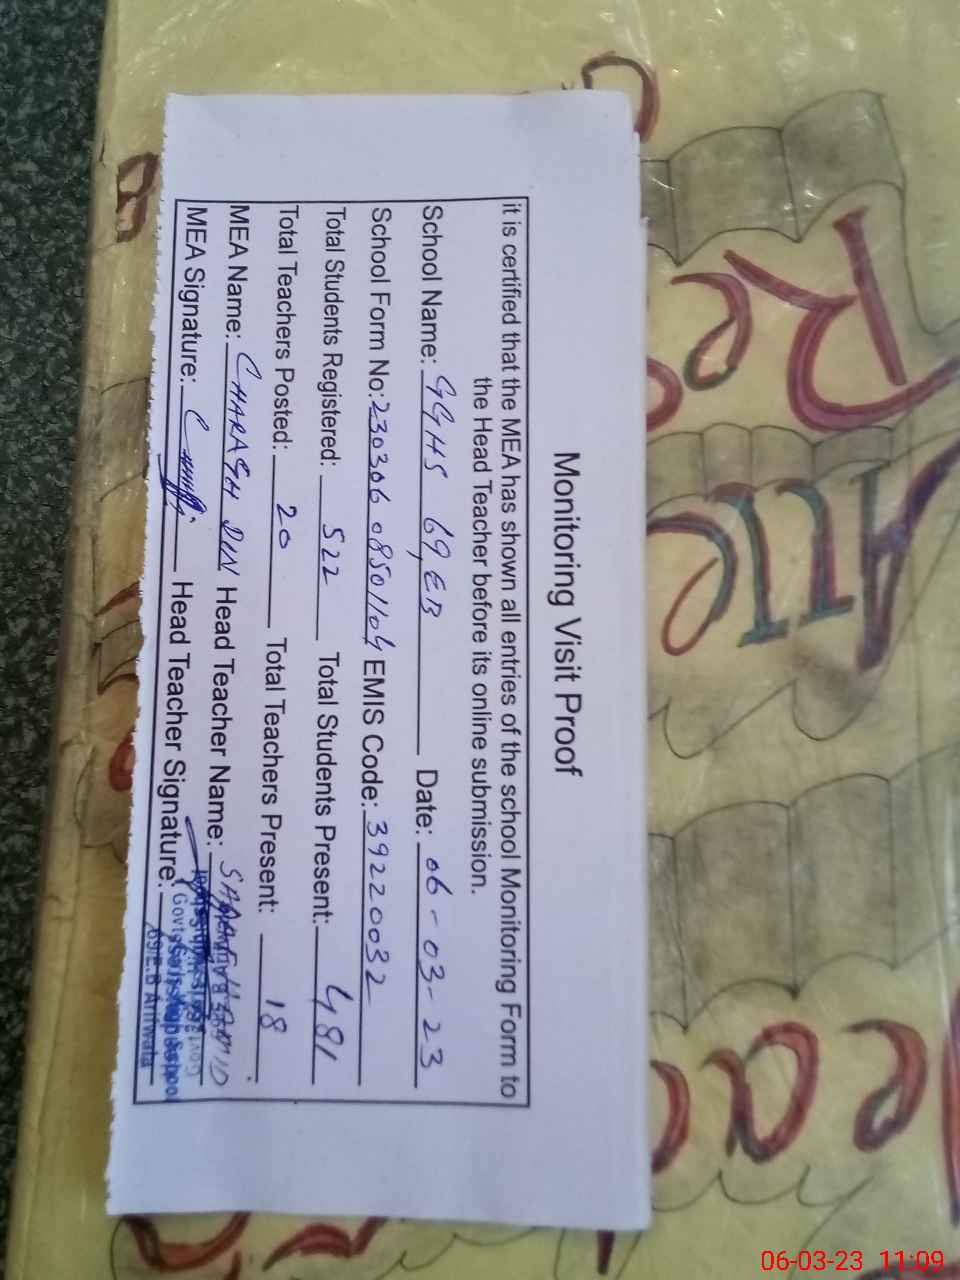 Monitoring Visit Proof
it is certified that the MEA has shown all entries of the school Monitoring Form to
the Head Teacher before its online submission.
School Name: GGHS 69,EB Date: 06-03-23
School Form No: 230306 08501104 EMIS Code: 39220032
Total Students Registered: 522 Total Students Present: 481
Total Teachers Posted: 20 Total Teachers Present: 18
MEA Name: CHARAGH DIN Head Teacher Name:
MEA Signature: Head Teacher Signature:
Govt
69/E.B Arifwala
Re
Atte
06-03-23 11:09